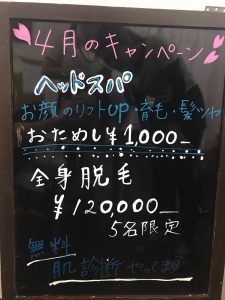 4月のキャンペーン
ヘッドスパ
お顔のリフトUP・育毛・髪ツヤ
おためし¥1,000-
全身脱毛
¥120,000-
5名限定
無料
肌診断やってます